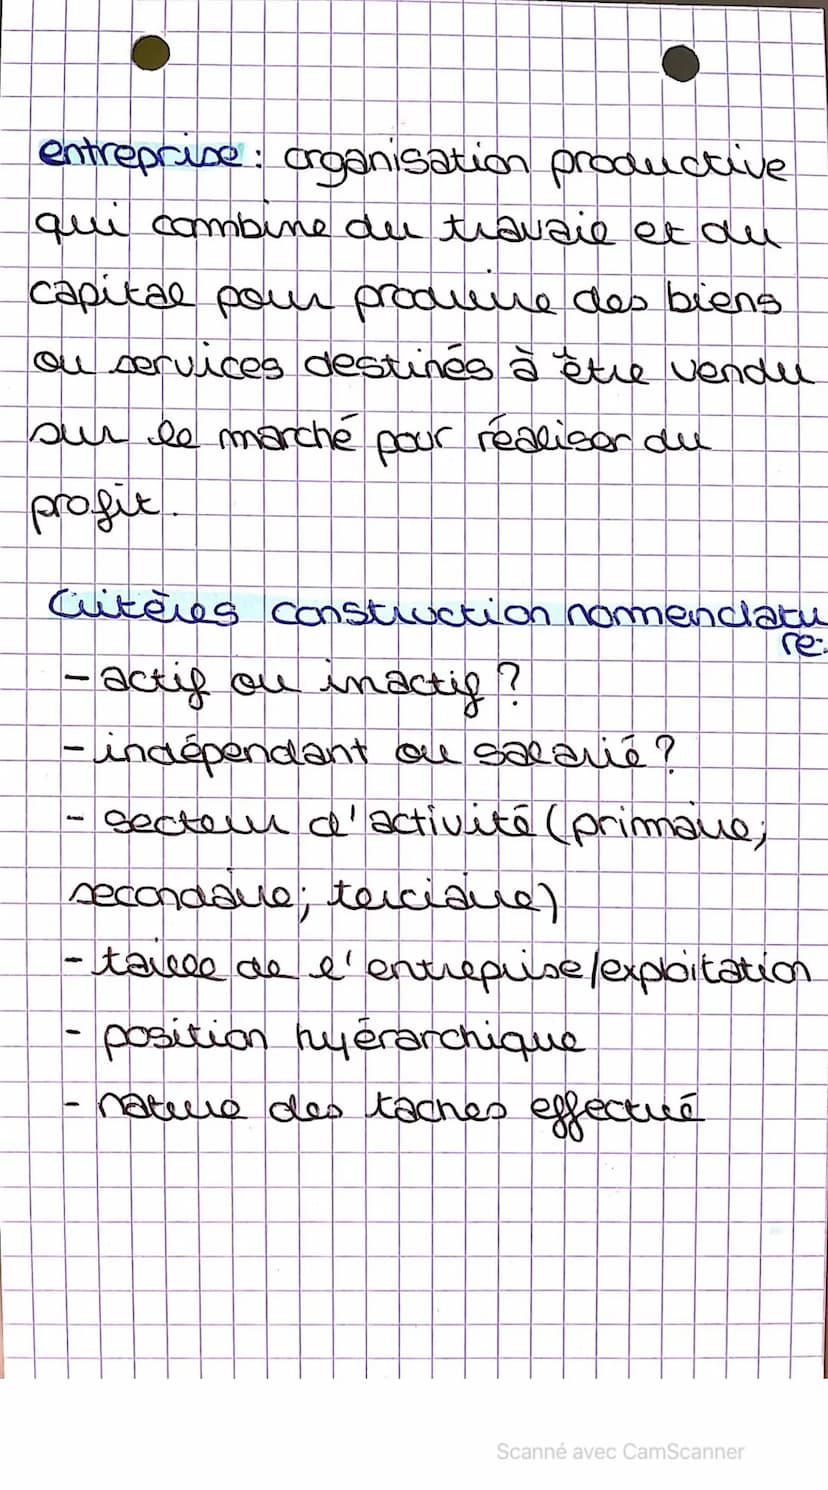 entreprise : organisation productive
qui combine du travail et du
capital pour produire des biens
ou services destinés à être vendu
sur le marché pour réaliser du
profit.
Critères construction nomenclatu
re:
- actif ou inactif ?
- indépendant ou salarié ?
- secteur d'activité (primaire;
secondaire; terciaire)
- taille de l'entreprise/exploitation
- position hyérarchique
- nature des taches effectué
Scanné avec CamScanner